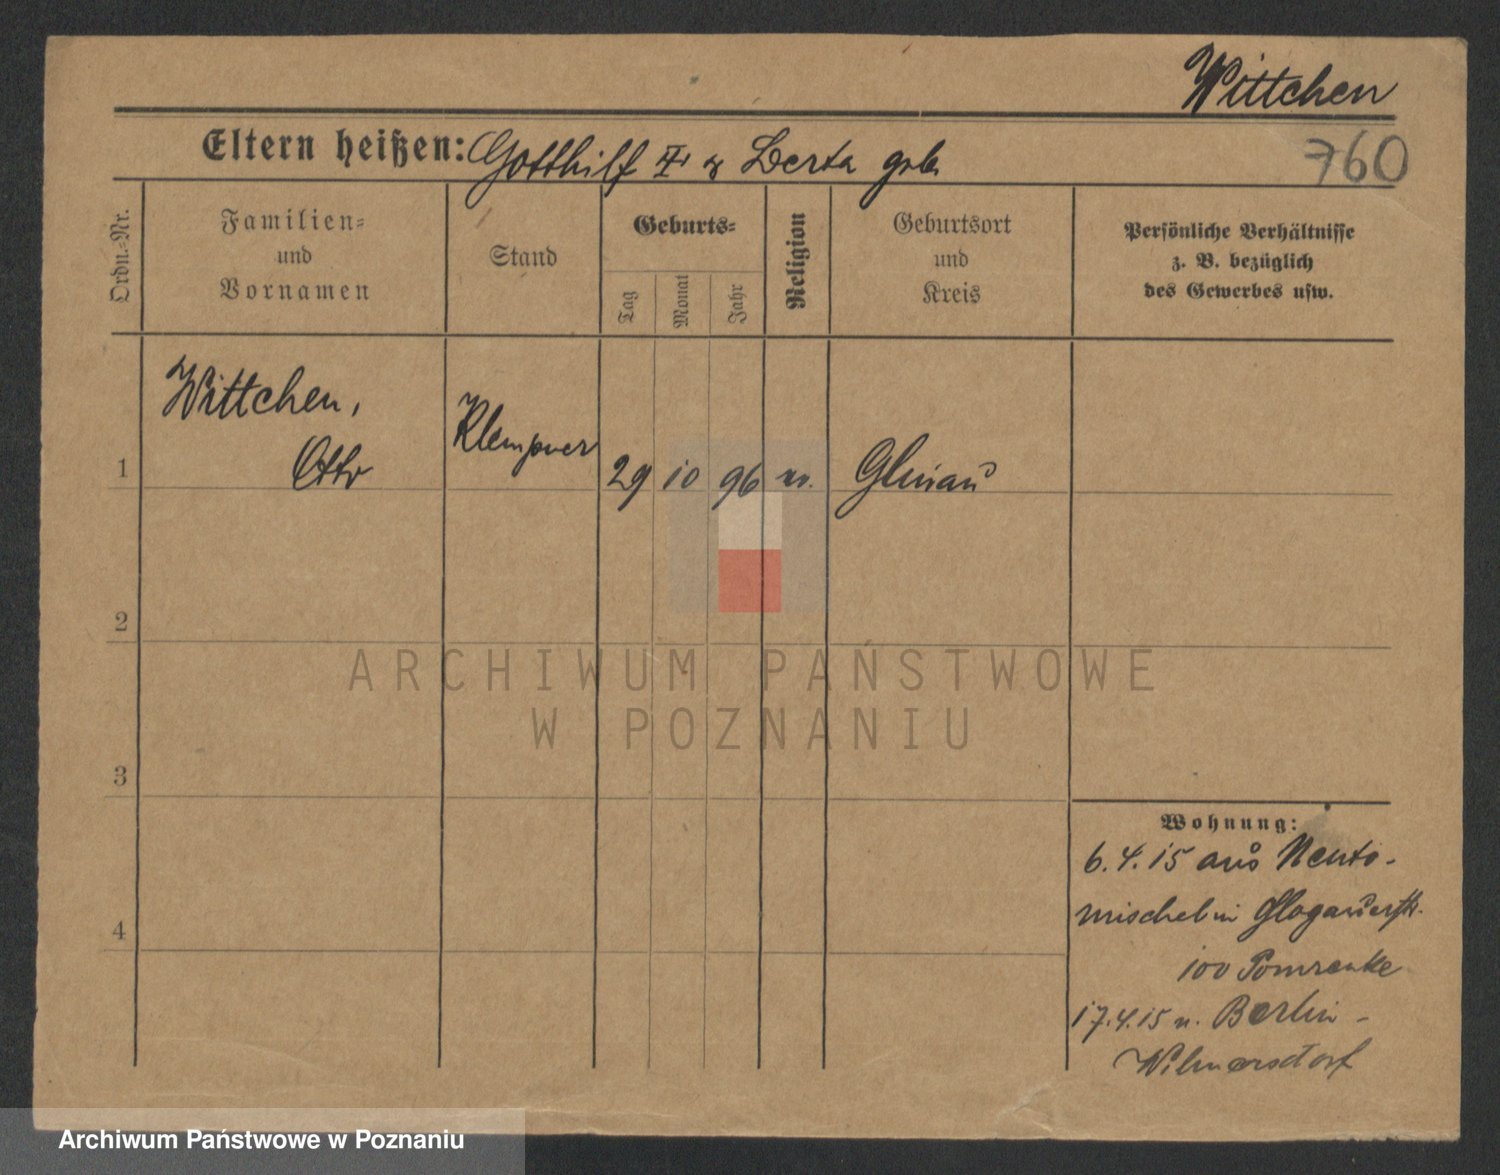 Wittchen
760
Eltern heißen: Gotthilf u Berta geb.
Ordn.-Nr.
Familien-
und
Vornamen
Stand
Geburts-
Tag
Monat
Jahr
Religion
Geburtsort
und
Kreis
Persönliche Verhältnisse
z. B. bezüglich
des Gewerbes usw.
Wittchen,
1 Otto Klempner 29 10 96 Glinau
2
ARCHIWUM PAŃSTWOWE
W POZNANIU
3
4
Wohnung:
6.4.15 aus Neuto-
mischel in Glogauerstr.
100 Pomrenke
17.4.15 n. Berlin-
Wilmersdorf
Archiwum Państwowe w Poznaniu